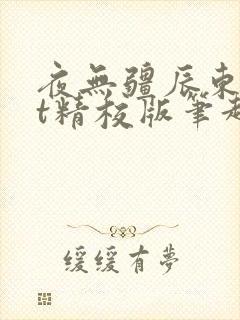 夜無疆辰東
t精校版筆趣
緩緩有夢